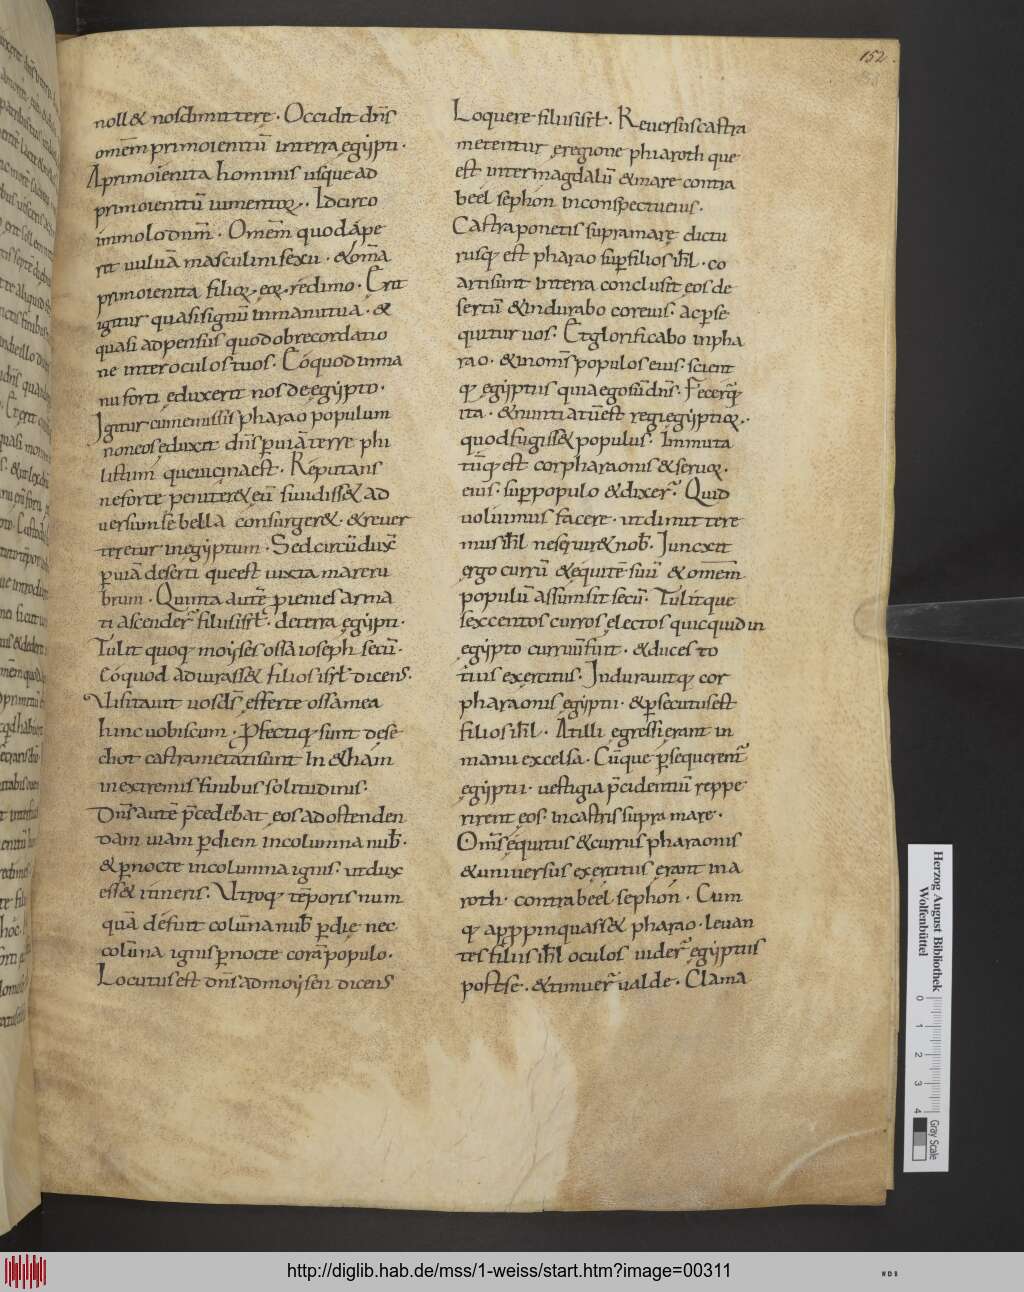 152
noll& nos dimittere. Occidit dn̄s
omēm primogenitū interra egẏpti.
Aprimogenita hominis usque ad
primogenitū iumentoꝝ. Idcirco
immolo dn̄m. Omēm quod ápe
rit uuluā masculini sexus. & om̄a
primogenita filioꝝ eoꝝ redimo. Erit
igitur quasi signū in manu tua. &
quasi adpensus quod obrecordatio
ne inter oculos tuos. Eo quod inma
nu forti eduxerit nos deegẏpto.
Igitur cum emisissis pharao populum
non eos eduxit dn̄s ꝑ uiā terre phi
listium que uicina est. Reputans
ne forte penitere& eū si uidiss& ad
uersum se bella consurgere&. & reuer
teretur in egẏptum. Sed circūdux̄
ꝑ uiā deserti que est iuxta mareru
brum. Quinta autē ꝓienies arma
ti ascender̄ filii isrł. deterra egẏpti.
Tulit quoqꝫ moẏses ossa ioseph secū.
Eo quod adiurass& filios isrł dicens.
Uisitauit uos ds̄ efferte ossa mea
hinc uobiscum. Profectiqꝫ sunt de se
chot castra metati sunt In &hám
in extremis finibus solitudinis.
Dn̄s autē p̄cedebat eos ad ostenden
dam uiam ꝑdiem in columna nub̄.
& ꝑnocte in columna ignis. ut dux
ess& itineris. Utroqꝫ tēporis num
quā défuit colūna nub̄ ꝑdie nec
colūna ignis ꝑnocte corā populo.
Locutus est dn̄s ad moẏsen dicens
Loquere filiis isrł. Reuersus castra
metentur eregione phiaroth que
est inter magdalū & mare contra
beél sephón inconspectu eius.
Castra ponetis supra mare dictu
rusqꝫ est pharao suꝑ filios isł. co
arti sunt interra conclusit eos de
sertū & indurabo cor eius. ac ꝑse
quitur uos. Et glorificabo inpha
rao. & inomīs populos eius. scient
qꝫ egẏptus quia ego sū dn̄s. Fecerq̄ꝫ
ita. & nuntiatū est regi egẏptioꝝ.
quod fugiss& populus. Inmuta
tūqꝫ est cor pharaonis & seruoꝝ.
eius. suꝑ populo & dixer̄. Quid
uoluimus facere. ut dimittere
mus isł ne seruir& nob̄. Iuncxit
ergo currū & equitē suū & omēm
populū assumsit secū. Tulitque
sexcentos curros electos quicquid in
egẏpto curruū fuit. & duces to
tius exercitus. Indurauitqꝫ cor
pharaonis egẏptii. & ꝑsecutus est
filios isł. At illi egressi erant in
manu excelsa. Cūque ꝑsequerent̄
egẏptii. uestigia p̄cidentiū reppe
rirent eos. in castris supra mare.
Om̄s equitus & currus pharaonis
& uniuersus exercitus erant ina
roth. contra beél sephón. Cum
qꝫ appropinquass& pharao. leuan
tes filius isł oculos uider̄ egẏptus
post se. & timuer̄ ualde. Clama
Herzog August Bibliothek
Wolfenbüttel
0 1 2 3 4
Gray Scale
http://diglib.hab.de/mss/1-weiss/start.htm?image=00311